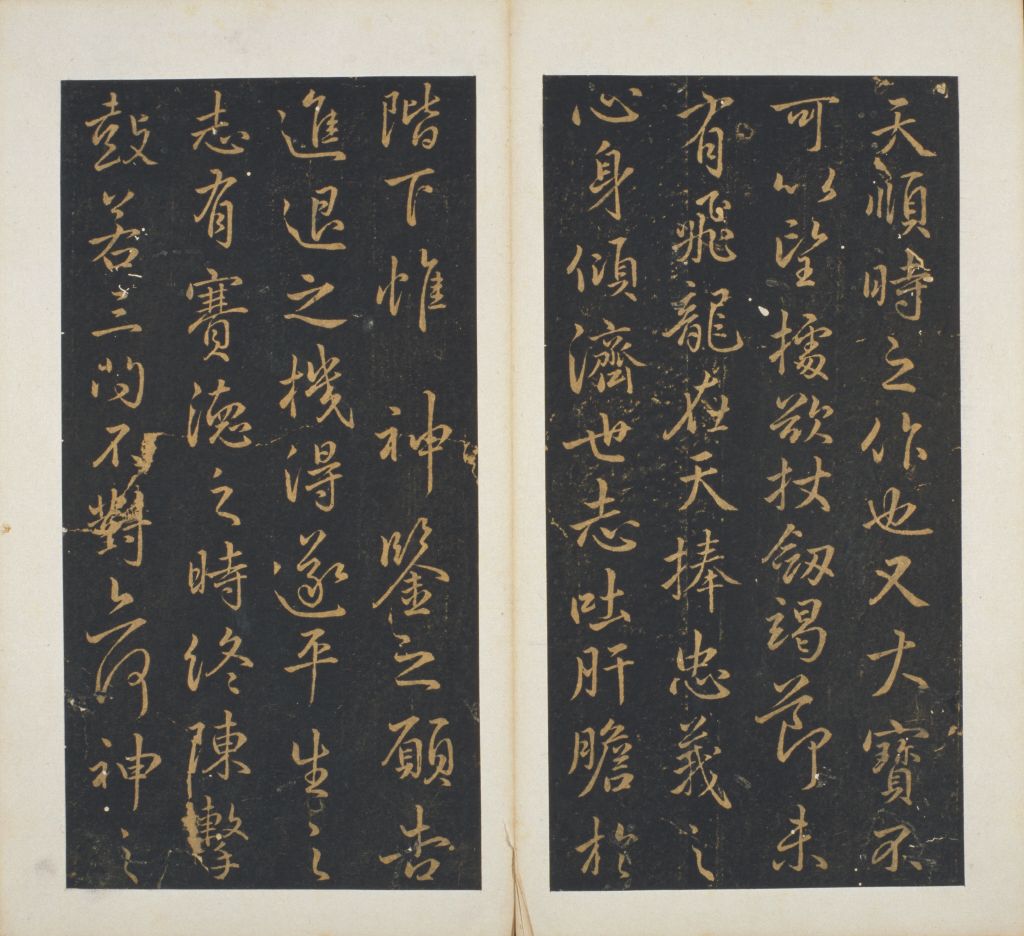 天順時之作也又大寶不
可以望據欲杖劒竭節未
有飛龍在天捧忠義之
心身傾濟世志吐肝膽於
階下惟神鑒之願告
進退之機得遂平生之
志有賽德之時終陳擊
鼓若三問不對亦何神之